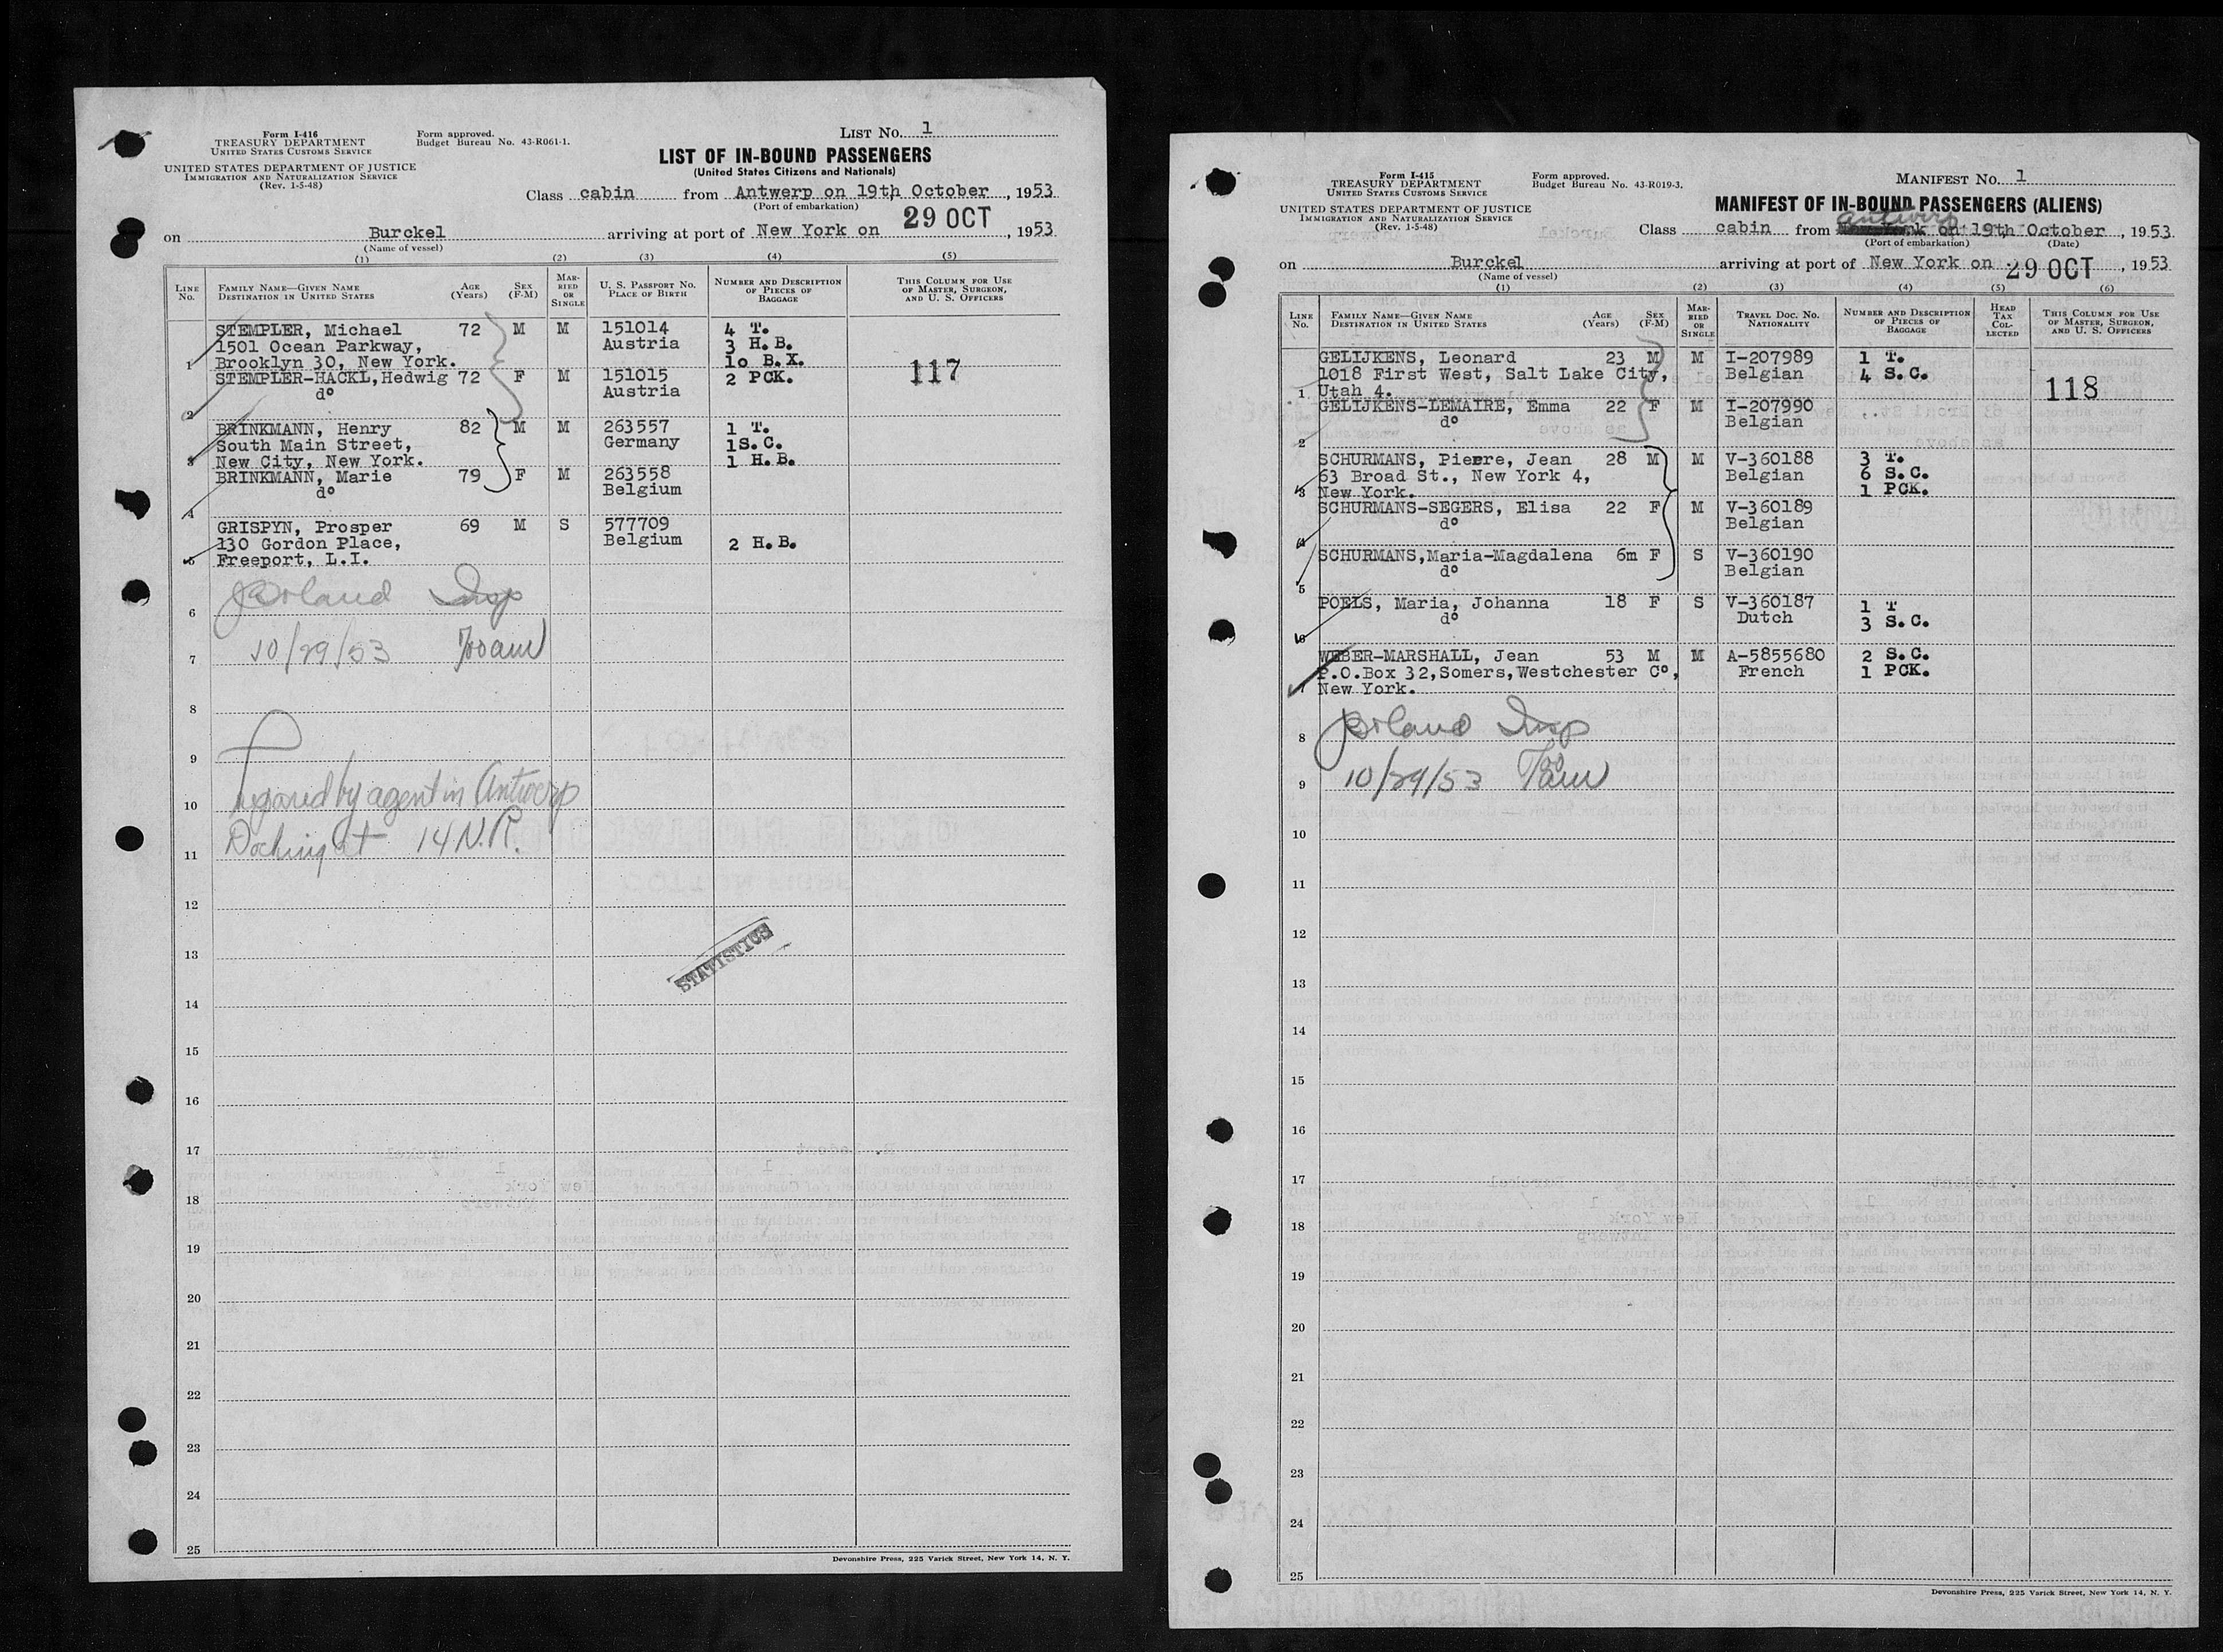 Form I-416
TREASURY DEPARTMENT
UNITED STATES CUSTOMS SERVICE
UNITED STATES DEPARTMENT OF JUSTICE
IMMIGRATION AND NATURALIZATION SERVICE
(Rev. 1-5-48)
Form approved.
Budget Bureau No. 43-R061-1.
LIST NO. 1
LIST OF IN-BOUND PASSENGERS
(United States Citizens and Nationals)
Class cabin from Antwerp on 19th October, 1953
(Port of embarkation)
on Burckel arriving at port of New York on 29 OCT, 1953
(Name of vessel)
(1) (2) (3) (4) (5)
LINE NO. FAMILY NAME—GIVEN NAME DESTINATION IN UNITED STATES AGE (Years) SEX (F-M) MARRIED OR SINGLE U. S. PASSPORT NO. PLACE OF BIRTH NUMBER AND DESCRIPTION OF PIECES OF BAGGAGE THIS COLUMN FOR USE OF MASTER, SURGEON, AND U. S. OFFICERS
STEMPLER, Michael 72 M M 151014 4 T.
1501 Ocean Parkway, Austria 3 H.B.
1 Brooklyn 30, New York. 10 B.X.
STEMPLER-HACKL, Hedwig 72 F M 151015 2 PCK. 117
do Austria
2
BRINKMANN, Henry 82 M M 263557 1 T.
South Main Street, Germany 1S.C.
3 New City, New York. 1 H.B.
BRINKMANN, Marie 79 F M 263558
do Belgium
4
GRISPYN, Prosper 69 M S 577709
130 Gordon Place, Belgium 2 H.B.
5 Freeport, L.I.
Insp
6
10/29/53 700am
7
8
9
10 by agent in Antwerp
11 Docking at 14 N.R.
12
13
STATISTICS
14
15
16
17
18
19
20
21
22
23
24
25
Devonshire Press, 225 Varick Street, New York 14, N. Y.
Form I-415
TREASURY DEPARTMENT
UNITED STATES CUSTOMS SERVICE
UNITED STATES DEPARTMENT OF JUSTICE
IMMIGRATION AND NATURALIZATION SERVICE
(Rev. 1-5-48)
Form approved.
Budget Bureau No. 43-R019-3.
MANIFEST NO. 1
MANIFEST OF IN-BOUND PASSENGERS (ALIENS)
Class cabin from Antwerp on 19th October, 1953
(Port of embarkation) (Date)
on Burckel arriving at port of New York on 29 OCT, 1953
(Name of vessel)
(1) (2) (3) (4) (5) (6)
LINE NO. FAMILY NAME—GIVEN NAME DESTINATION IN UNITED STATES AGE (Years) SEX (F-M) MARRIED OR SINGLE TRAVEL DOC. NO. NATIONALITY NUMBER AND DESCRIPTION OF PIECES OF BAGGAGE HEAD TAX COLLECTED THIS COLUMN FOR USE OF MASTER, SURGEON, AND U. S. OFFICERS
GELIJKENS, Leonard 23 M M I-207989 1 T.
1018 First West, Salt Lake City, Belgian 4 S.C.
1 Utah 4. 118
GELIJKENS-LEMAIRE, Emma 22 F M I-207990
do Belgian
2
SCHURMANS, Pierre, Jean 28 M M V-360188 3 T.
63 Broad St., New York 4, Belgian 6 S.C.
3 New York. 1 PCK.
SCHURMANS-SEGERS, Elisa 22 F M V-360189
do Belgian
4
SCHURMANS, Maria-Magdalena 6m F S V-360190
do Belgian
5
POELS, Maria, Johanna 18 F S V-360187 1 T
do Dutch 3 S.C.
6
WEBER-MARSHALL, Jean 53 M M A-5855680 2 S.C.
P.O.Box 32, Somers, Westchester Co, French 1 PCK.
7 New York.
Insp
8
10/29/53
9
10
11
12
13
14
15
16
17
18
19
20
21
22
23
24
25
Devonshire Press, 225 Varick Street, New York 14, N. Y.